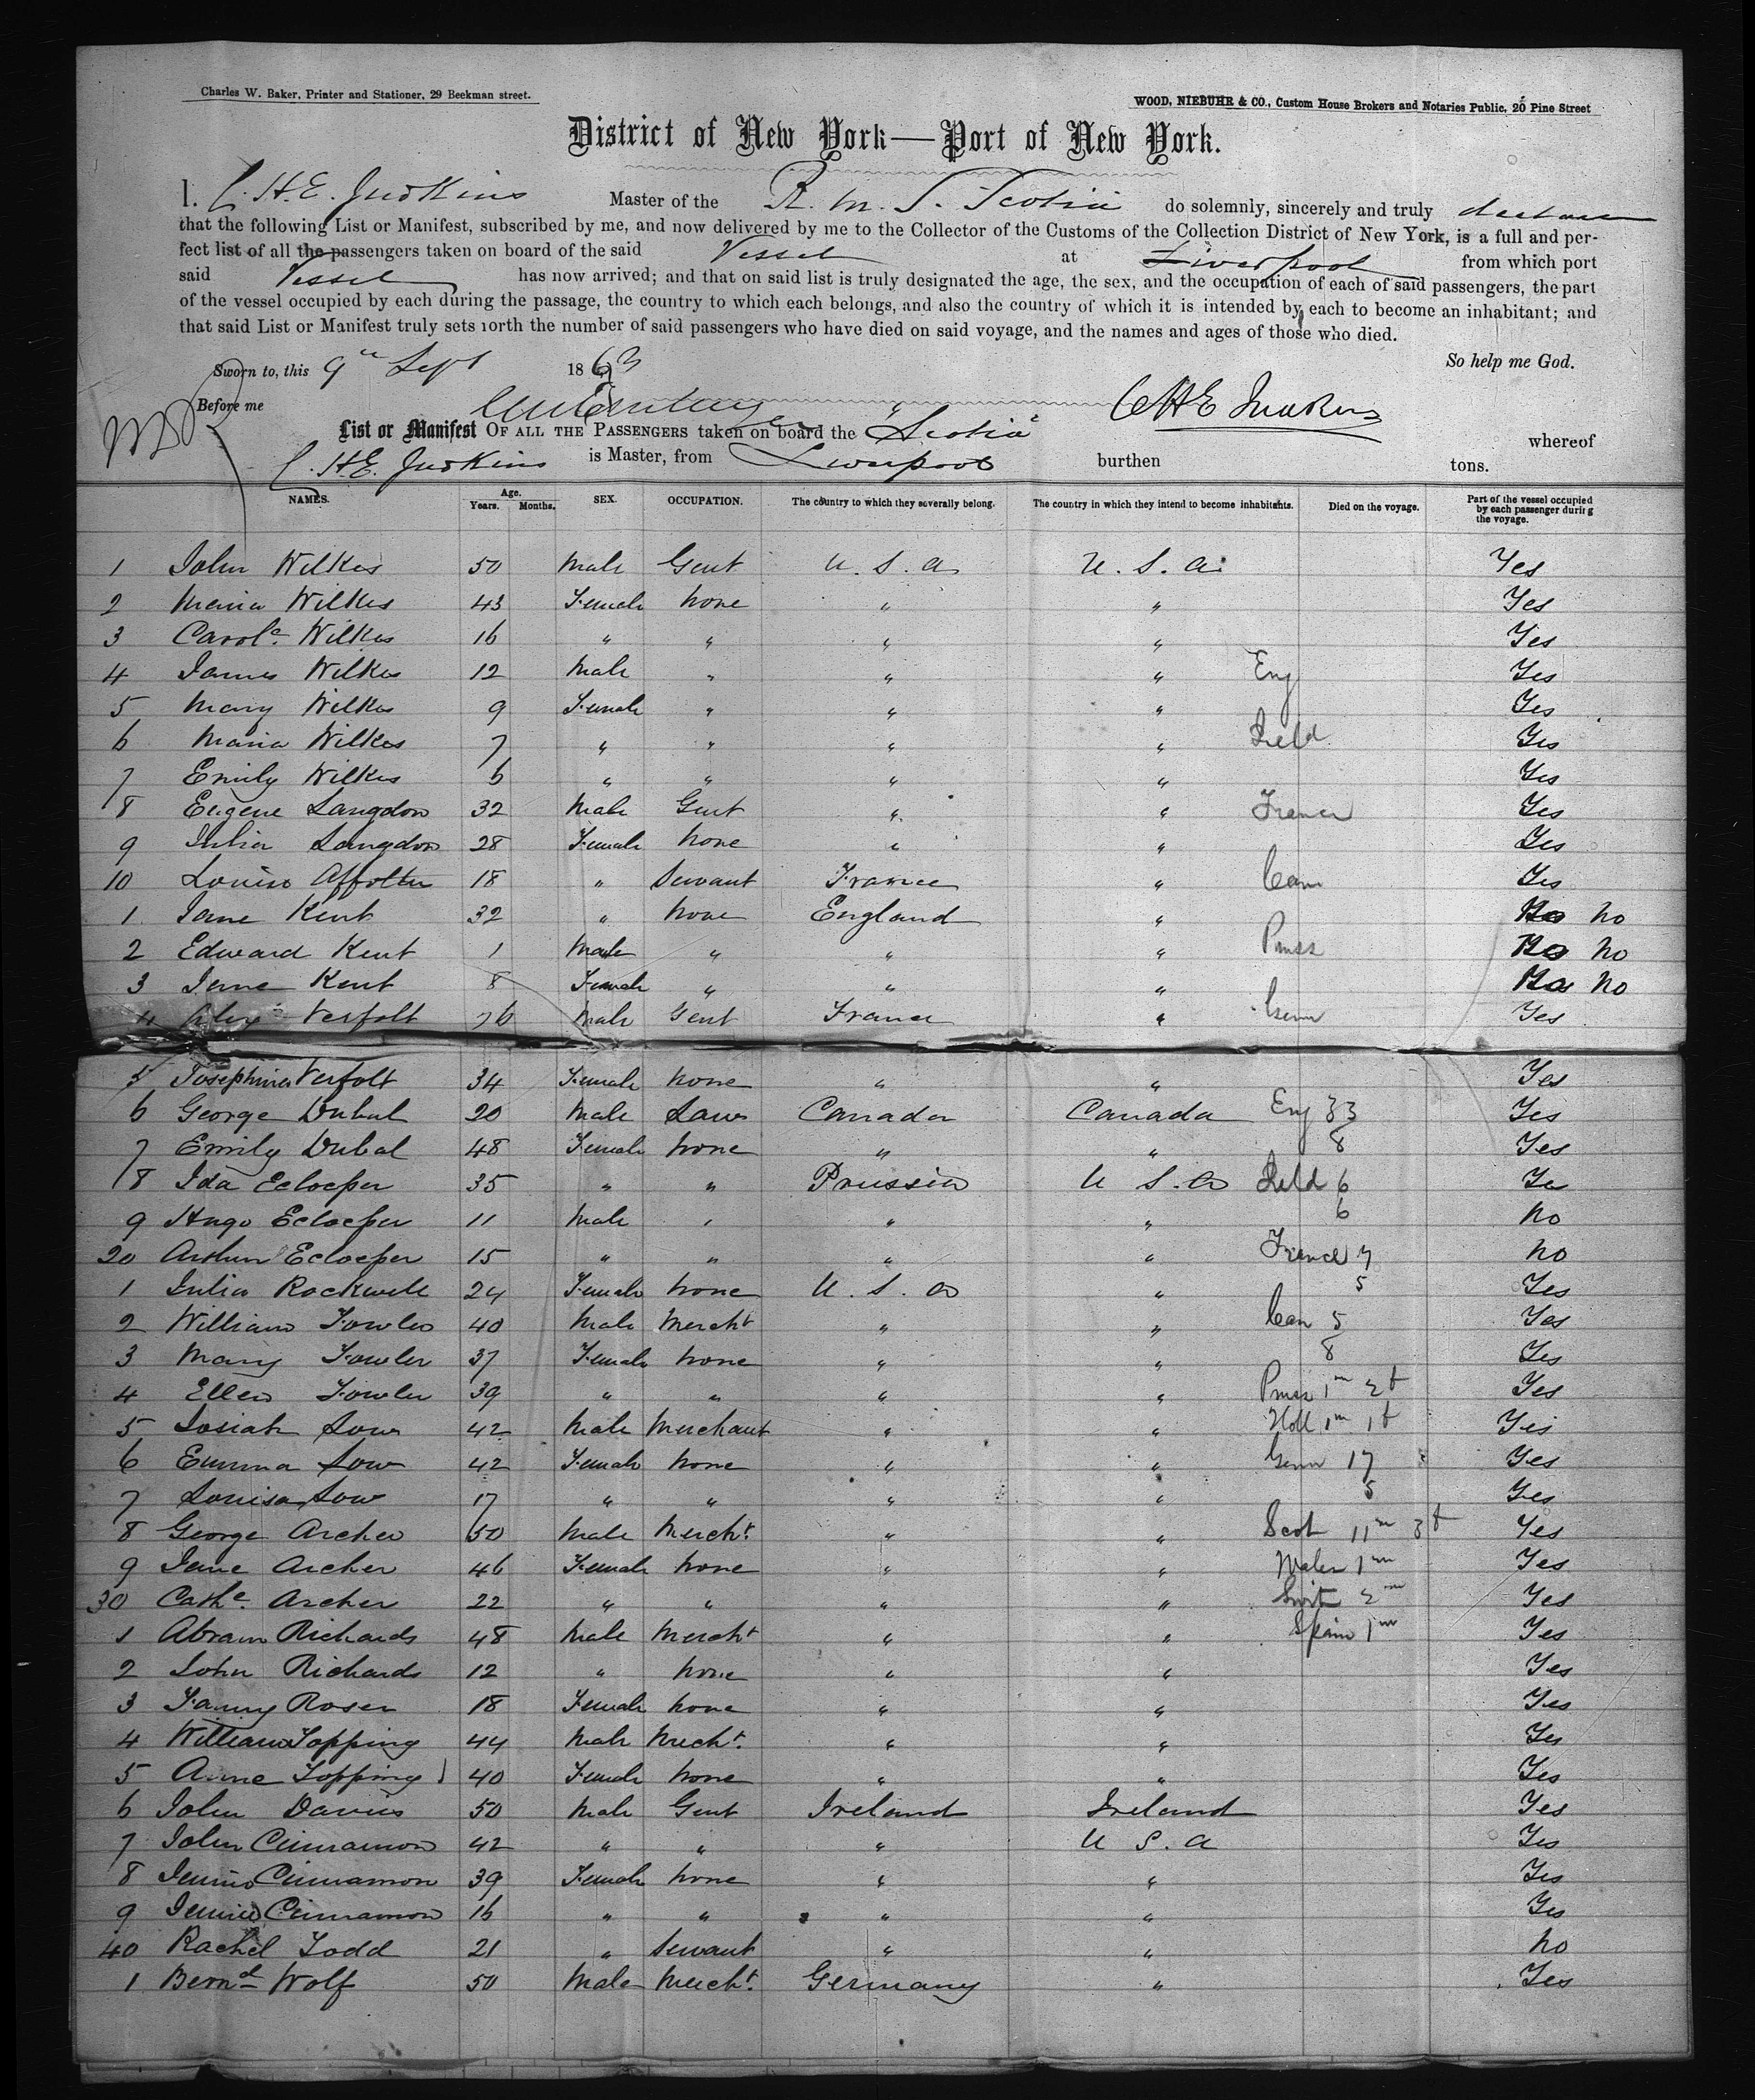 Charles W. Baker, Printer and Stationer, 29 Beekman street.
WOOD, NIEBUHR & CO., Custom House Brokers and Notaries Public, 26 Pine Street
District of New York—Port of New York.
I. C. H. E. Judkins Master of the R. M. S. Scotia do solemnly, sincerely and truly declare
that the following List or Manifest, subscribed by me, and now delivered by me to the Collector of the Customs of the Collection District of New York, is a full and per-
fect list of all the passengers taken on board of the said Vessel at Liverpool from which port
said Vessel has now arrived; and that on said list is truly designated the age, the sex, and the occupation of each of said passengers, the part
of the vessel occupied by each during the passage, the country to which each belongs, and also the country of which it is intended by each to become an inhabitant; and
that said List or Manifest truly sets forth the number of said passengers who have died on said voyage, and the names and ages of those who died.
Sworn to, this 9th Sept 1863 So help me God.
Before me CHE Judkins
List or Manifest OF ALL THE PASSENGERS taken on board the "Scotia" whereof
C. H. E. Judkins is Master, from Liverpool burthen tons.
NAMES. Age. Years. Months. SEX. OCCUPATION. The country to which they severally belong. The country in which they intend to become inhabitants. Died on the voyage. Part of the vessel occupied by each passenger during the voyage.
1 John Wilkes 50 Male Gent U. S. A U. S. A. Yes
2 Maria Wilkes 43 Female None " " Yes
3 Carole. Wilkes 16 " " " " Yes
4 James Wilkes 12 Male " " " Eng Yes
5 Mary Wilkes 9 Female " " " Yes
6 Maria Wilkes 7 " " " " Ireld Yes
7 Emily Wilkes 6 " " " " Yes
8 Eugene Langdon 32 Male Gent " " France Yes
9 Julia Langdon 28 Female None " " Yes
10 Louise Affolter 18 " Servant France " Can Yes
1 Jane Kent 32 " None England " No
2 Edward Kent 1 Male " " " Pruss No
3 Jane Kent 8 Female " " " No
4 Alex Verfolt 76 Male Gent France " Germ Yes
5 Josephine Verfolt 34 Female None " " Yes
6 George Dubal 20 Male Law Canada Canada Eng 33 Yes
7 Emily Dubal 48 Female None " " 8 Yes
8 Ida Ecloeper 35 " " Prussia U S. A Ireld 6 Ye
9 Hugo Ecloeper 11 Male " " " 6 No
20 Arthur Ecloeper 15 " " " " France 7 No
1 Julia Rockwell 24 Female None U. S. A " 5 Yes
2 William Fowler 40 Male Mercht " " Can 5 Yes
3 Mary Fowler 37 Female None " " 8 Yes
4 Ellen Fowler 39 " " " " Pruss 1m 2f Yes
5 Josiah Low 42 Male Merchant " " Holl 1m 1f Yes
6 Emma Low 42 Female None " " Germ 17 Yes
7 Louisa Low 17 " " " " 5 Yes
8 George Archer 50 Male Mercht. " " Scot 11m 3f Yes
9 Jane Archer 46 Female None " " Wales 1m Yes
30 Cathe. Archer 22 " " " " Swit 2m Yes
1 Abram Richards 48 Male Mercht " " Spain 1m Yes
2 John Richards 12 " None " " Yes
3 Fanny Rosen 18 Female None " " Yes
4 William Topping 44 Male Mercht. " " Yes
5 Anne Topping 40 Female None " " Yes
6 John Davies 50 Male Gent Ireland Ireland Yes
7 John Cinnamon 42 " " " U S. A Yes
8 Jennie Cinnamon 39 Female None " " Yes
9 Jennie Cinnamon 16 " " " " Yes
40 Rachel Todd 21 " Servant " " No
1 Bernd Wolf 50 Male Mercht. Germany " Yes